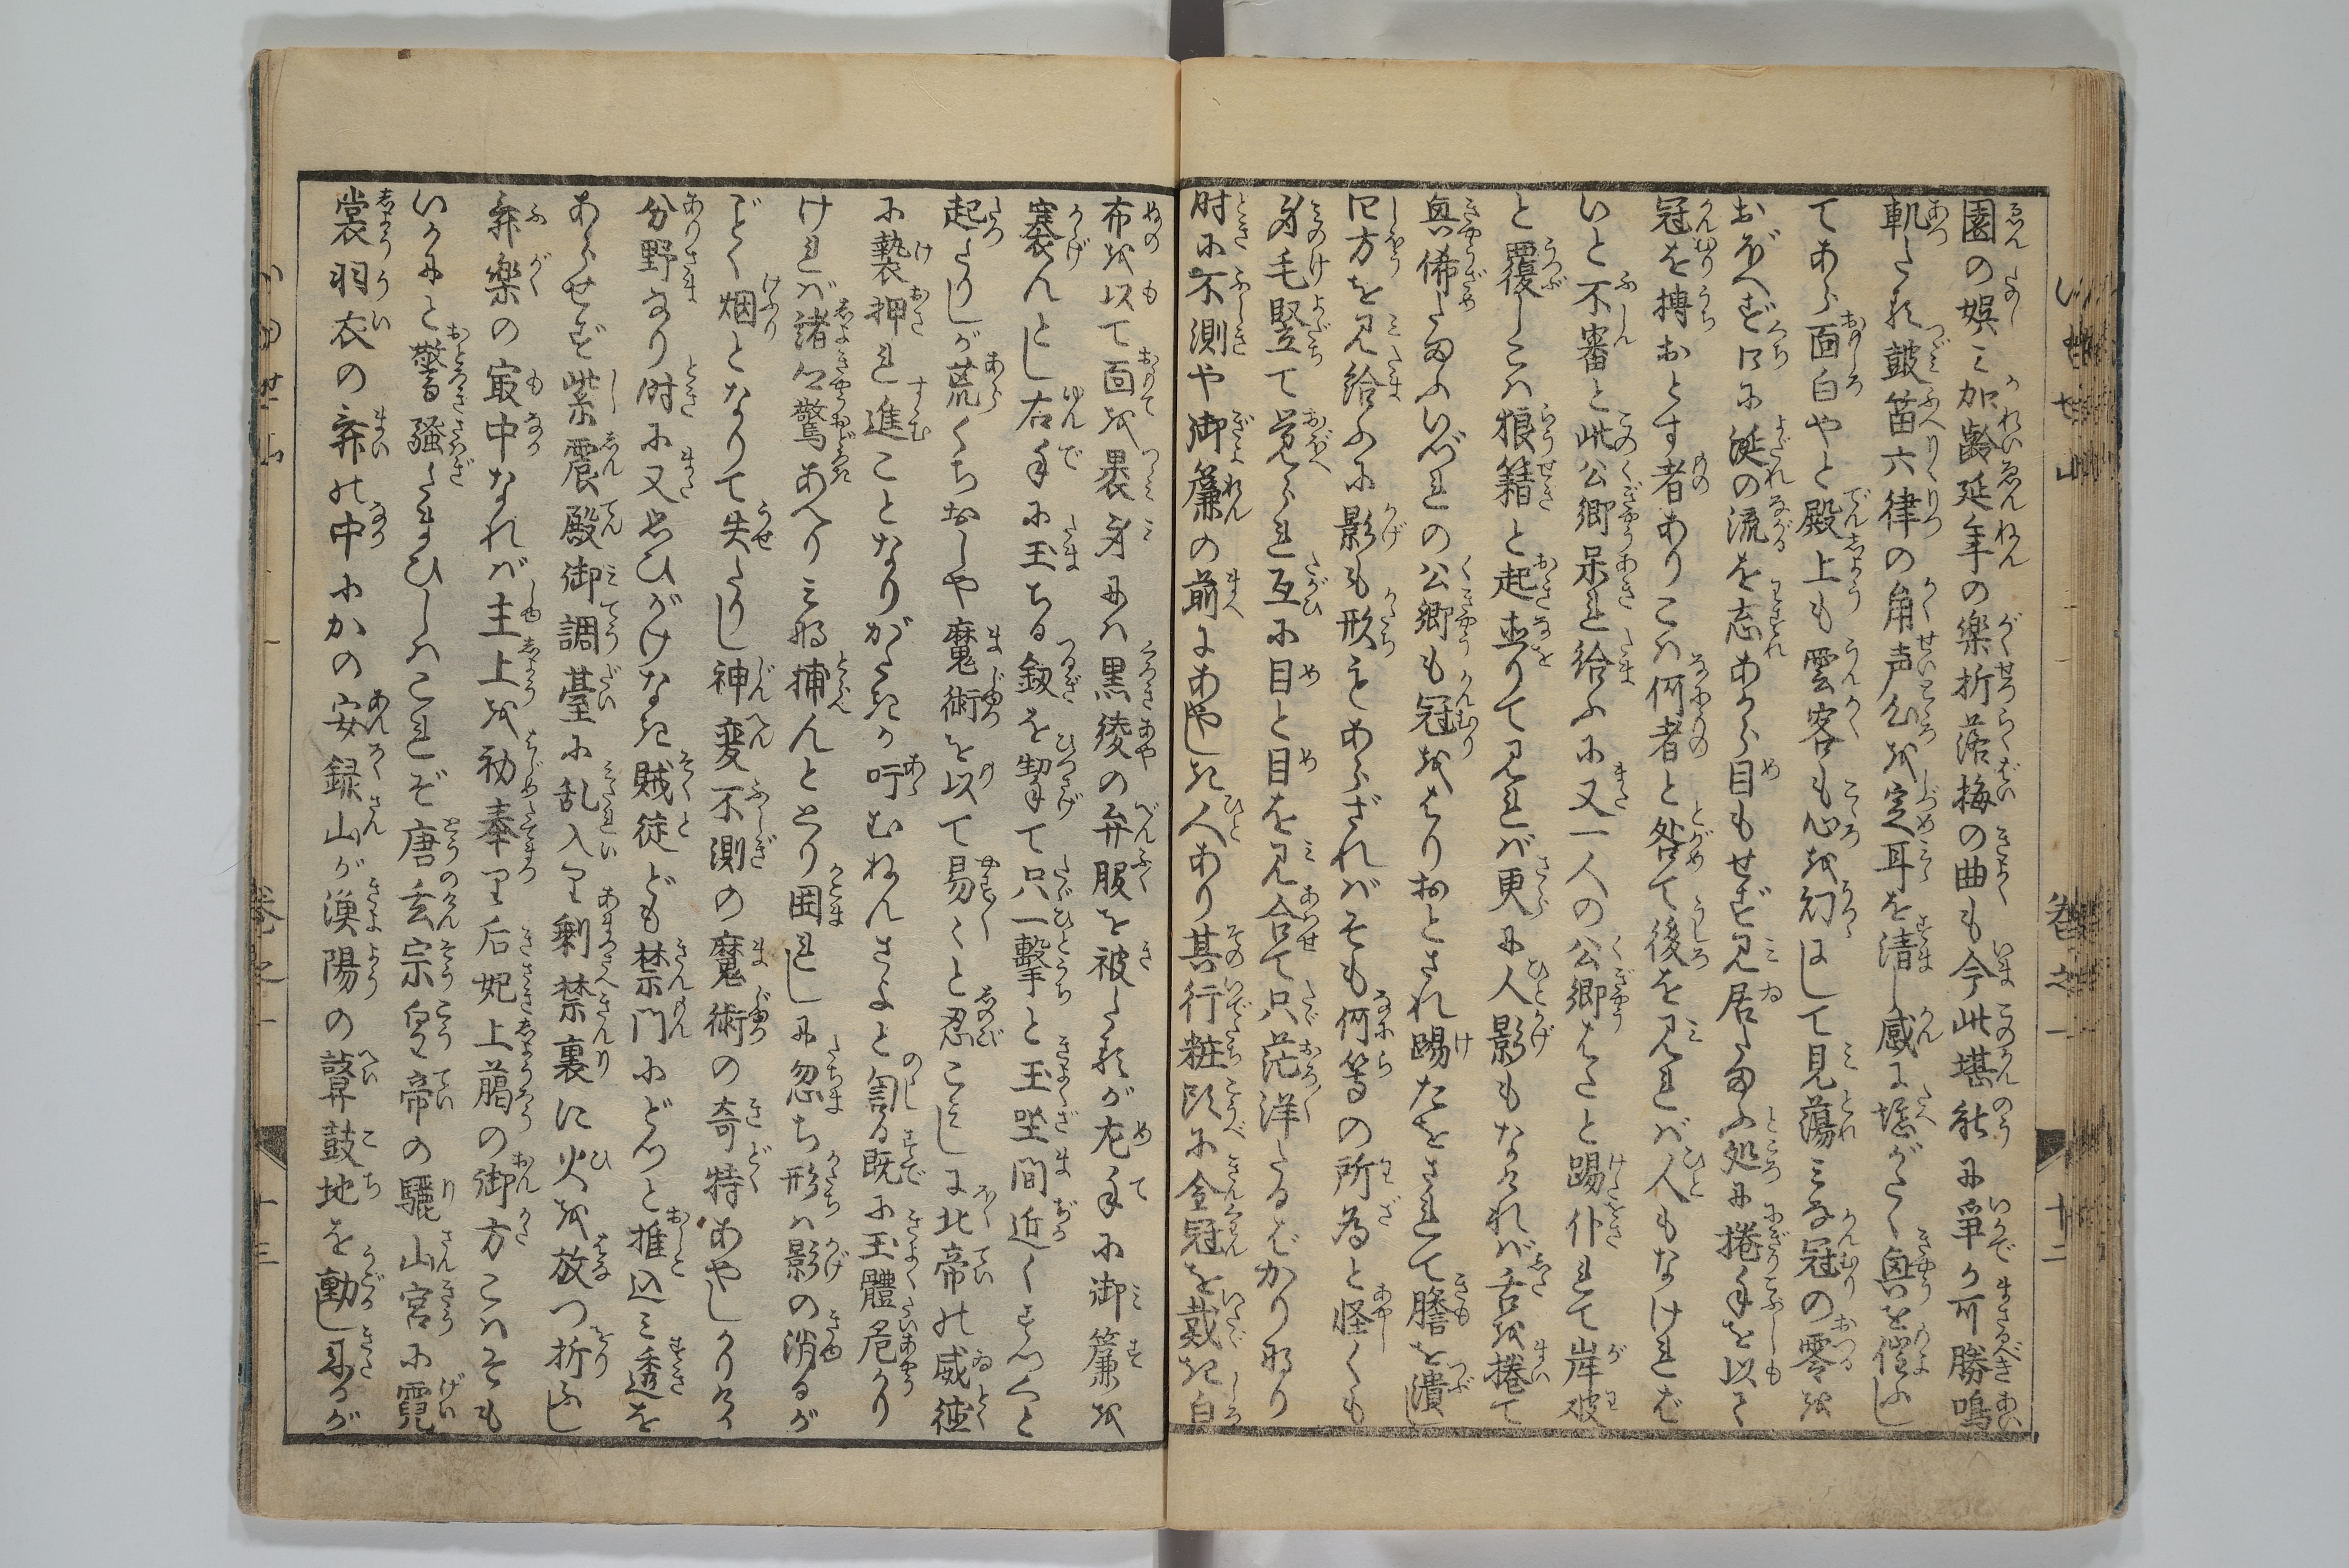 園の娯ミ加齢延年の楽折落梅の曲も今此堪能に争か可勝鳴
軋たる皷笛六律の角声心を定耳を清し感に堪がたく興を催ふし
てあら面白やと殿上も雲客も心を幻にして見蕩ミな冠の零を
おぼへず口に涎の流を忘あから目もせず見居たまふ処に捲手を以て
冠を搏おとす者ありこハ何者と咎て後を見れバ人もなければ
いと不審と此公卿呆れ給ふに又一人の公卿はたと踢仆れて岸破
と覆しこハ狼藉と起直りて見れバ更に人影もなけれバ舌を捲て
興俙たまふいづれの公卿も冠をはり おとされ踢たをされて膽を潰し
四方を見給ふに影も形もあらざれバそも何等の所為と怪くも
身毛竪て覚られ互に目と目を見合せて只茫洋たるばかり也
時に不測や御簾の前にあやしき人あり其行粧頭に金冠を戴き白
布を以て面を裹身にハ黒綾の弁服を被たるが左手に御簾を
褰んとし右手に玉ちる釼を挈て只一撃と玉坐間近くすつくと
起たりしが荒くちおしや魔術を以て易々と忍こミしに北帝の威徳
に褻押れ進ことなりがたきか吁むねんさよと訇る既に玉體危かり
けれバ諸卿驚あへりミな捕んととり囲れしに忽ち形ハ影の消るが
ごとく烟となりて失たりし神変不測の魔術の奇特あやしかりける
分野なり時に又思ひがけなき賊徒ども禁門にどつと推込ミ透を
あらせず紫震殿御調臺に乱入り剰禁裏に火を放つ折ふし
舞楽の㝡中なれバ主上を初奉り后妃上﨟の御方こハそも
いかにと驚騒たまひしハこれぞ唐玄宗皇帝の驪山宮に霓
裳羽衣の舞の中にかの安録山が漁陽の鼙鼓地を動し来るが
卷之一
十二
卷之一
十三